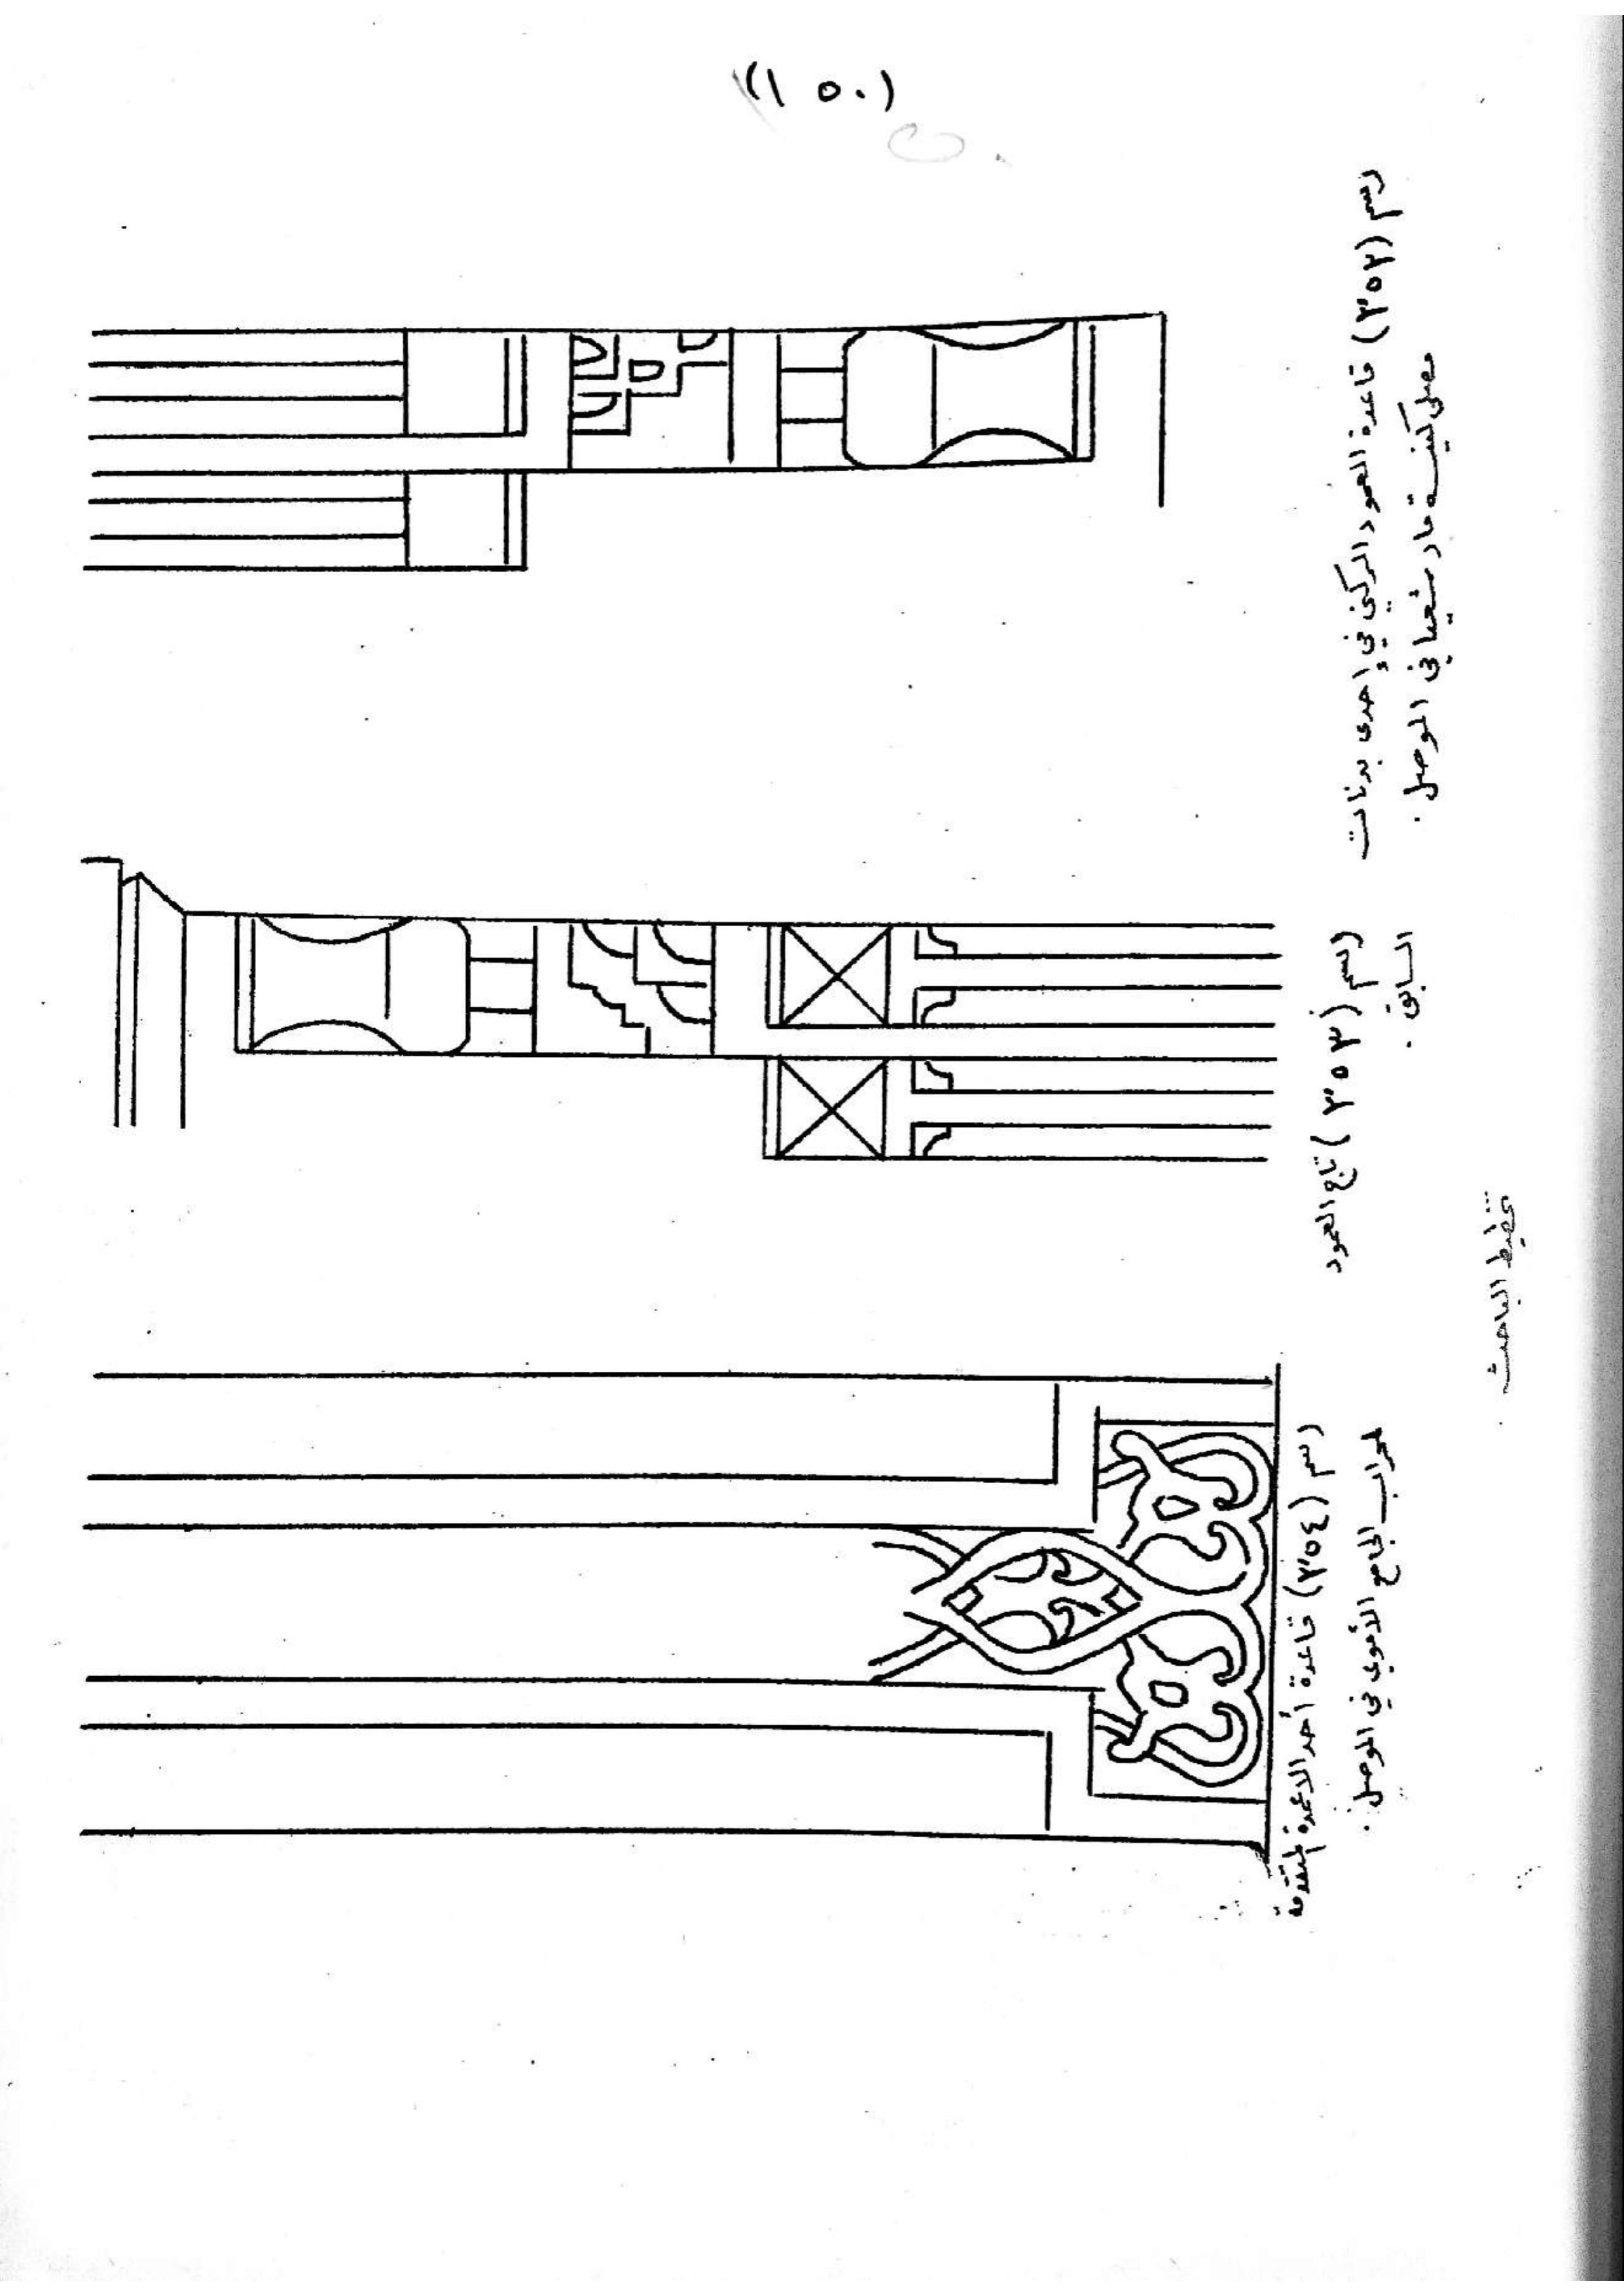 (١٥٠)
رسم (٢٥٢) قاعدة العمود الركني في إحدى بدنات
مصلى كنيسة مار شعيا في الموصل .
رسم (٢٥٣) تاج العمود
السابق .
رسم (٢٥٤) قاعدة أحد الاعمدة المتقدمة
لمحراب الجامع الأموي في الموصل .
تخطيط الباحث .